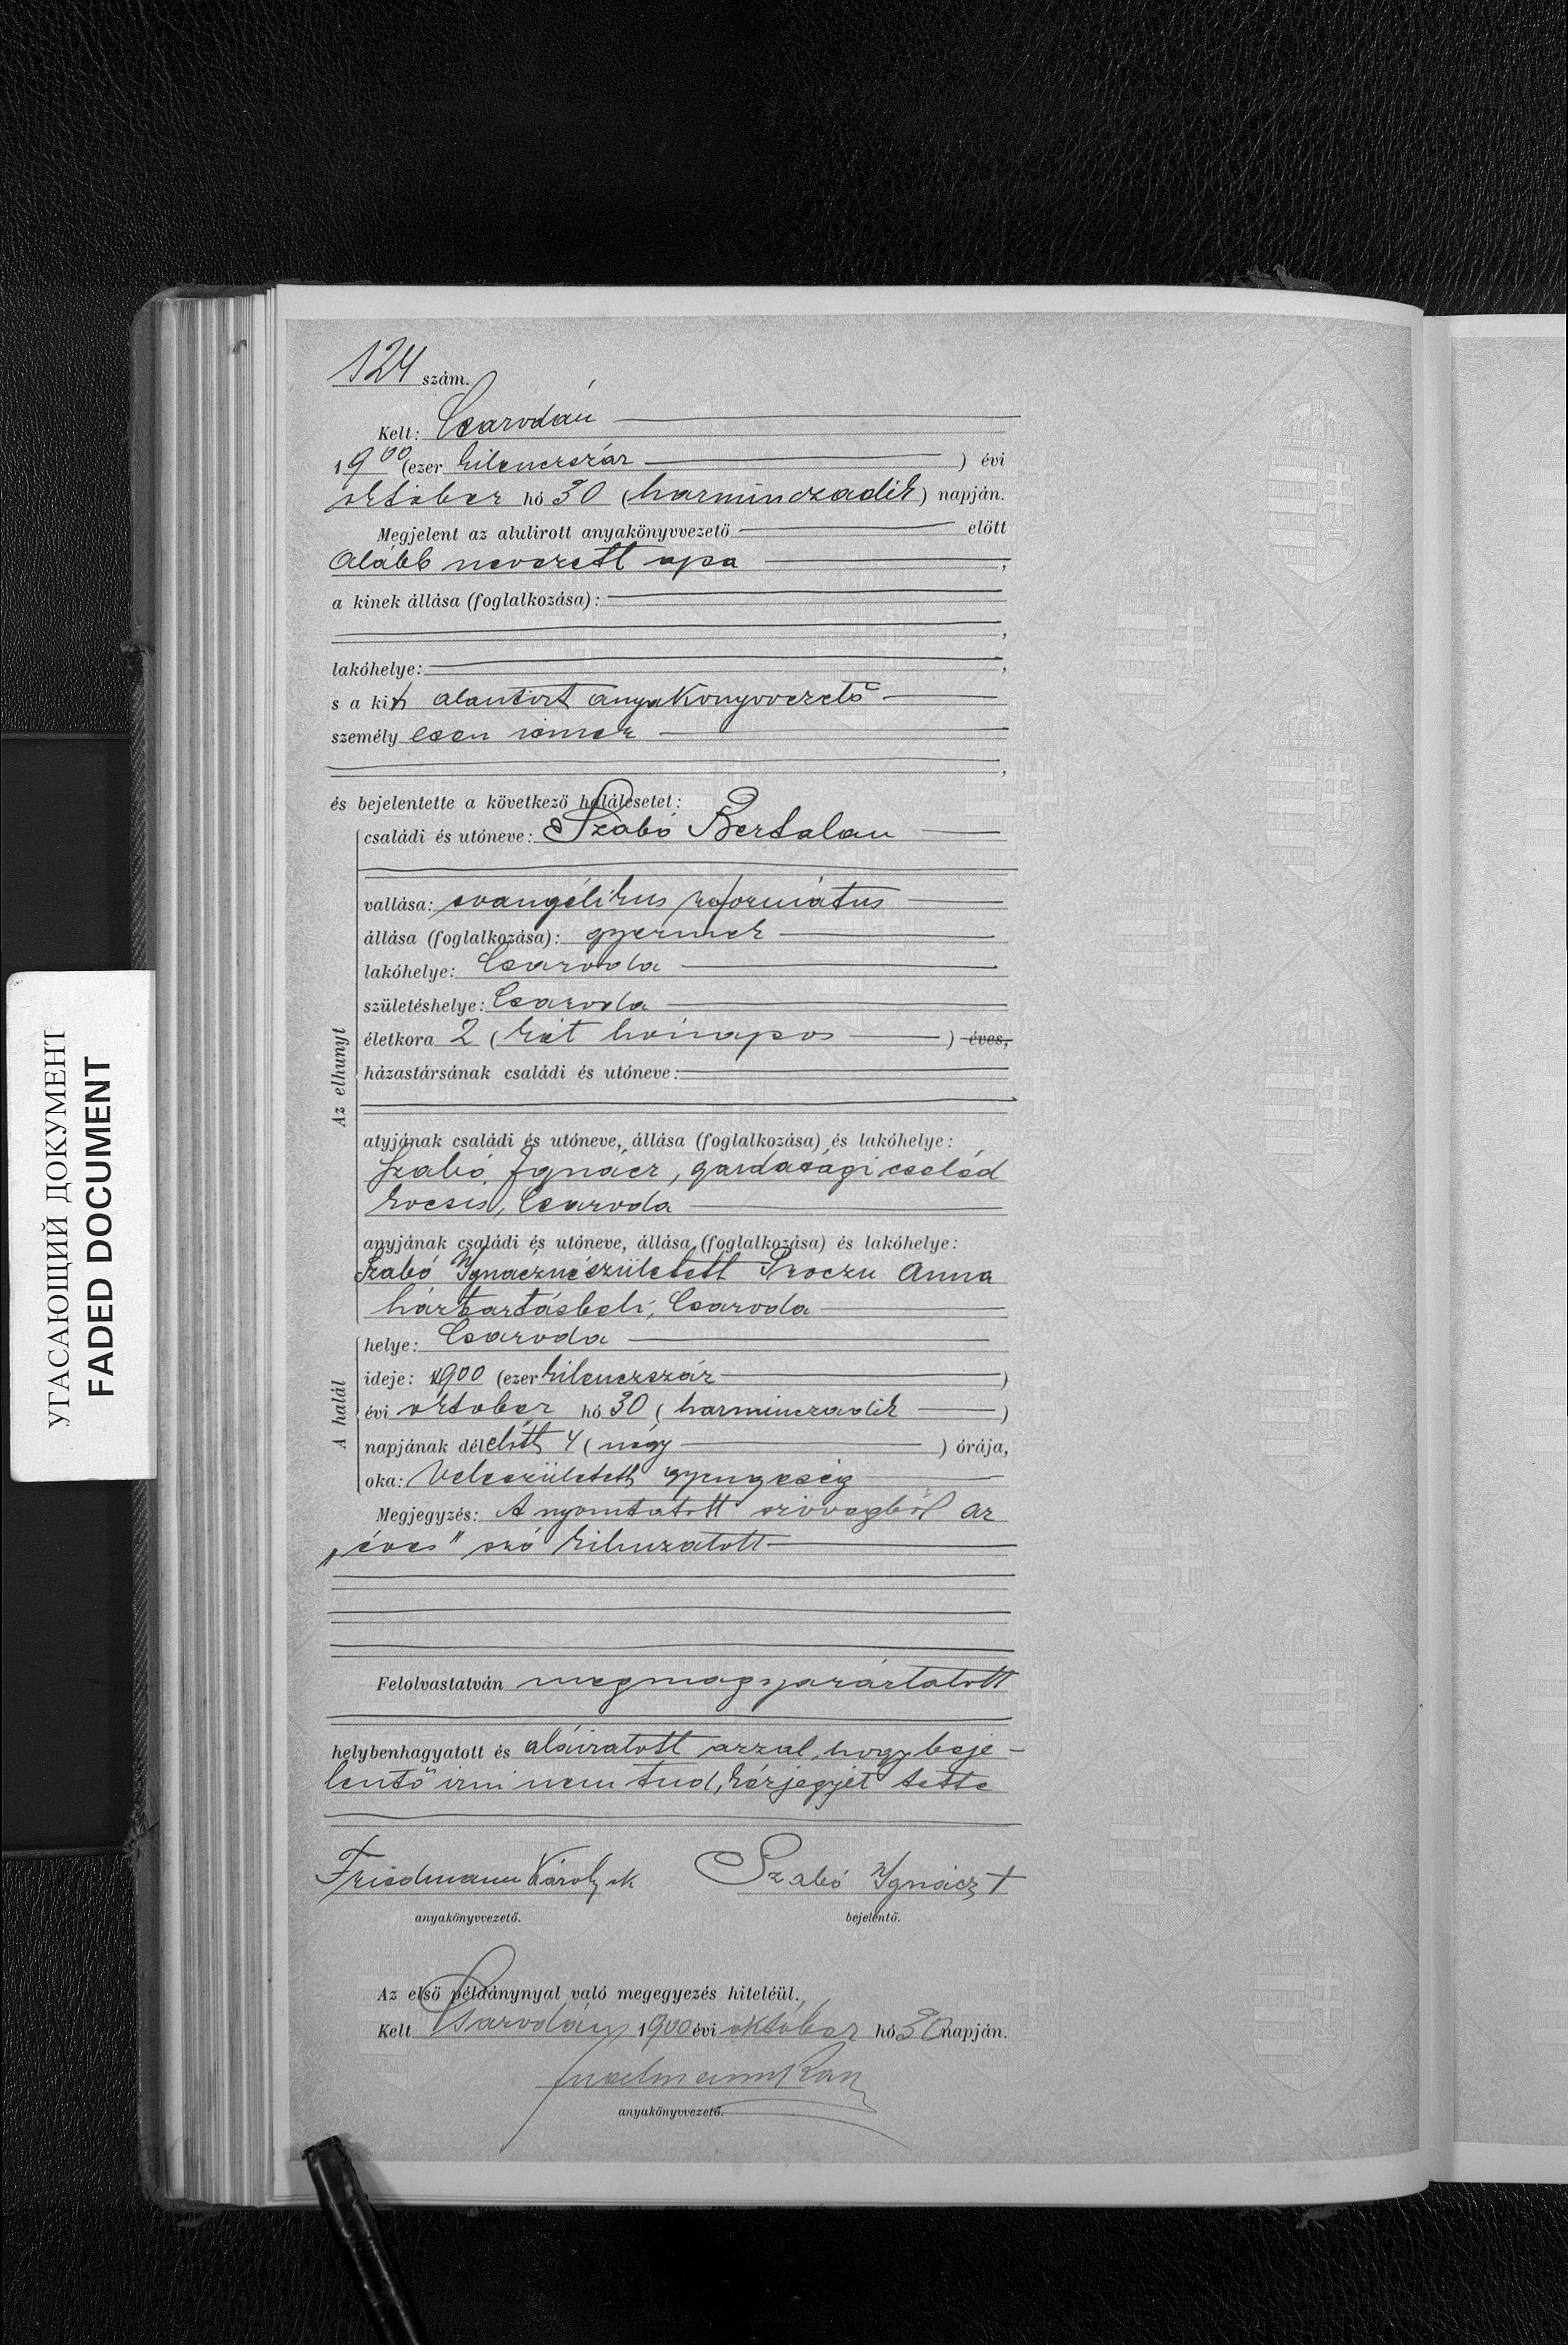 124 szám.
Kelt: Csarodán
1900 (ezer kilenczszáz) évi
október hó 30 (harminczadik) napján.
Megjelent az alulirott anyakönyvvezető előtt
alább nevezett apa,
a kinek állása (foglalkozása):
lakóhelye:
s a kit alantirt anyakönyvvezető
személyesen ismer
és bejelentette a következő halálesetet:
családi és utóneve: Szabó Bertalan
vallása: evangélikus református
állása (foglalkozása): gyermek
lakóhelye: Csaroda
születéshelye: Csaroda
életkora 2 (két hónapos) éves,
házastársának családi és utóneve:
Az elhunyt
atyjának családi és utóneve, állása (foglalkozása) és lakóhelye:
Szabó Ignácz, gazdasági cseléd
kocsis, Csaroda
anyjának családi és utóneve, állása (foglalkozása) és lakóhelye:
Szabó Ignáczné született Anna
háztartásbeli, Csaroda
A halál
helye: Csaroda
ideje: 1900 (ezer kilenczszáz)
évi október hó 30 (harminczadik)
napjának délelőtt 4 (négy) órája,
oka: Veleszületett gyengeség
Megjegyzés: A nyomtatott szövegből az
„éves" szó kihuzatott
Felolvastatván megmagyaráztatott
helybenhagyatott és aláiratott azzal, hogy beje-
lentő irni nem tud, kézjegyét tette
Friedmann Károly sk Szabó Ignácz +
anyakönyvvezető. bejelentő.
Az első példánynyal való megegyezés hiteléül.
Kelt Csarodán 1900 évi október hó 30 napján.
anyakönyvvezető.
УГАСАЮЩИЙ ДОКУМЕНТ
FADED DOCUMENT